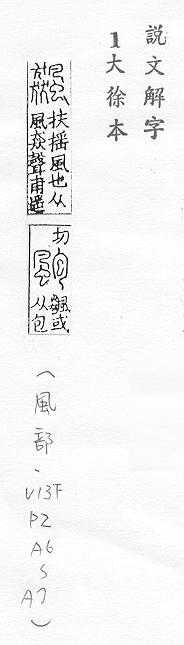 說文解字
1大徐本
飆
扶搖風也从
風猋聲甫遥
切
颮
飆或
从包
(風部、
V13下
P2
A6
S
A7)